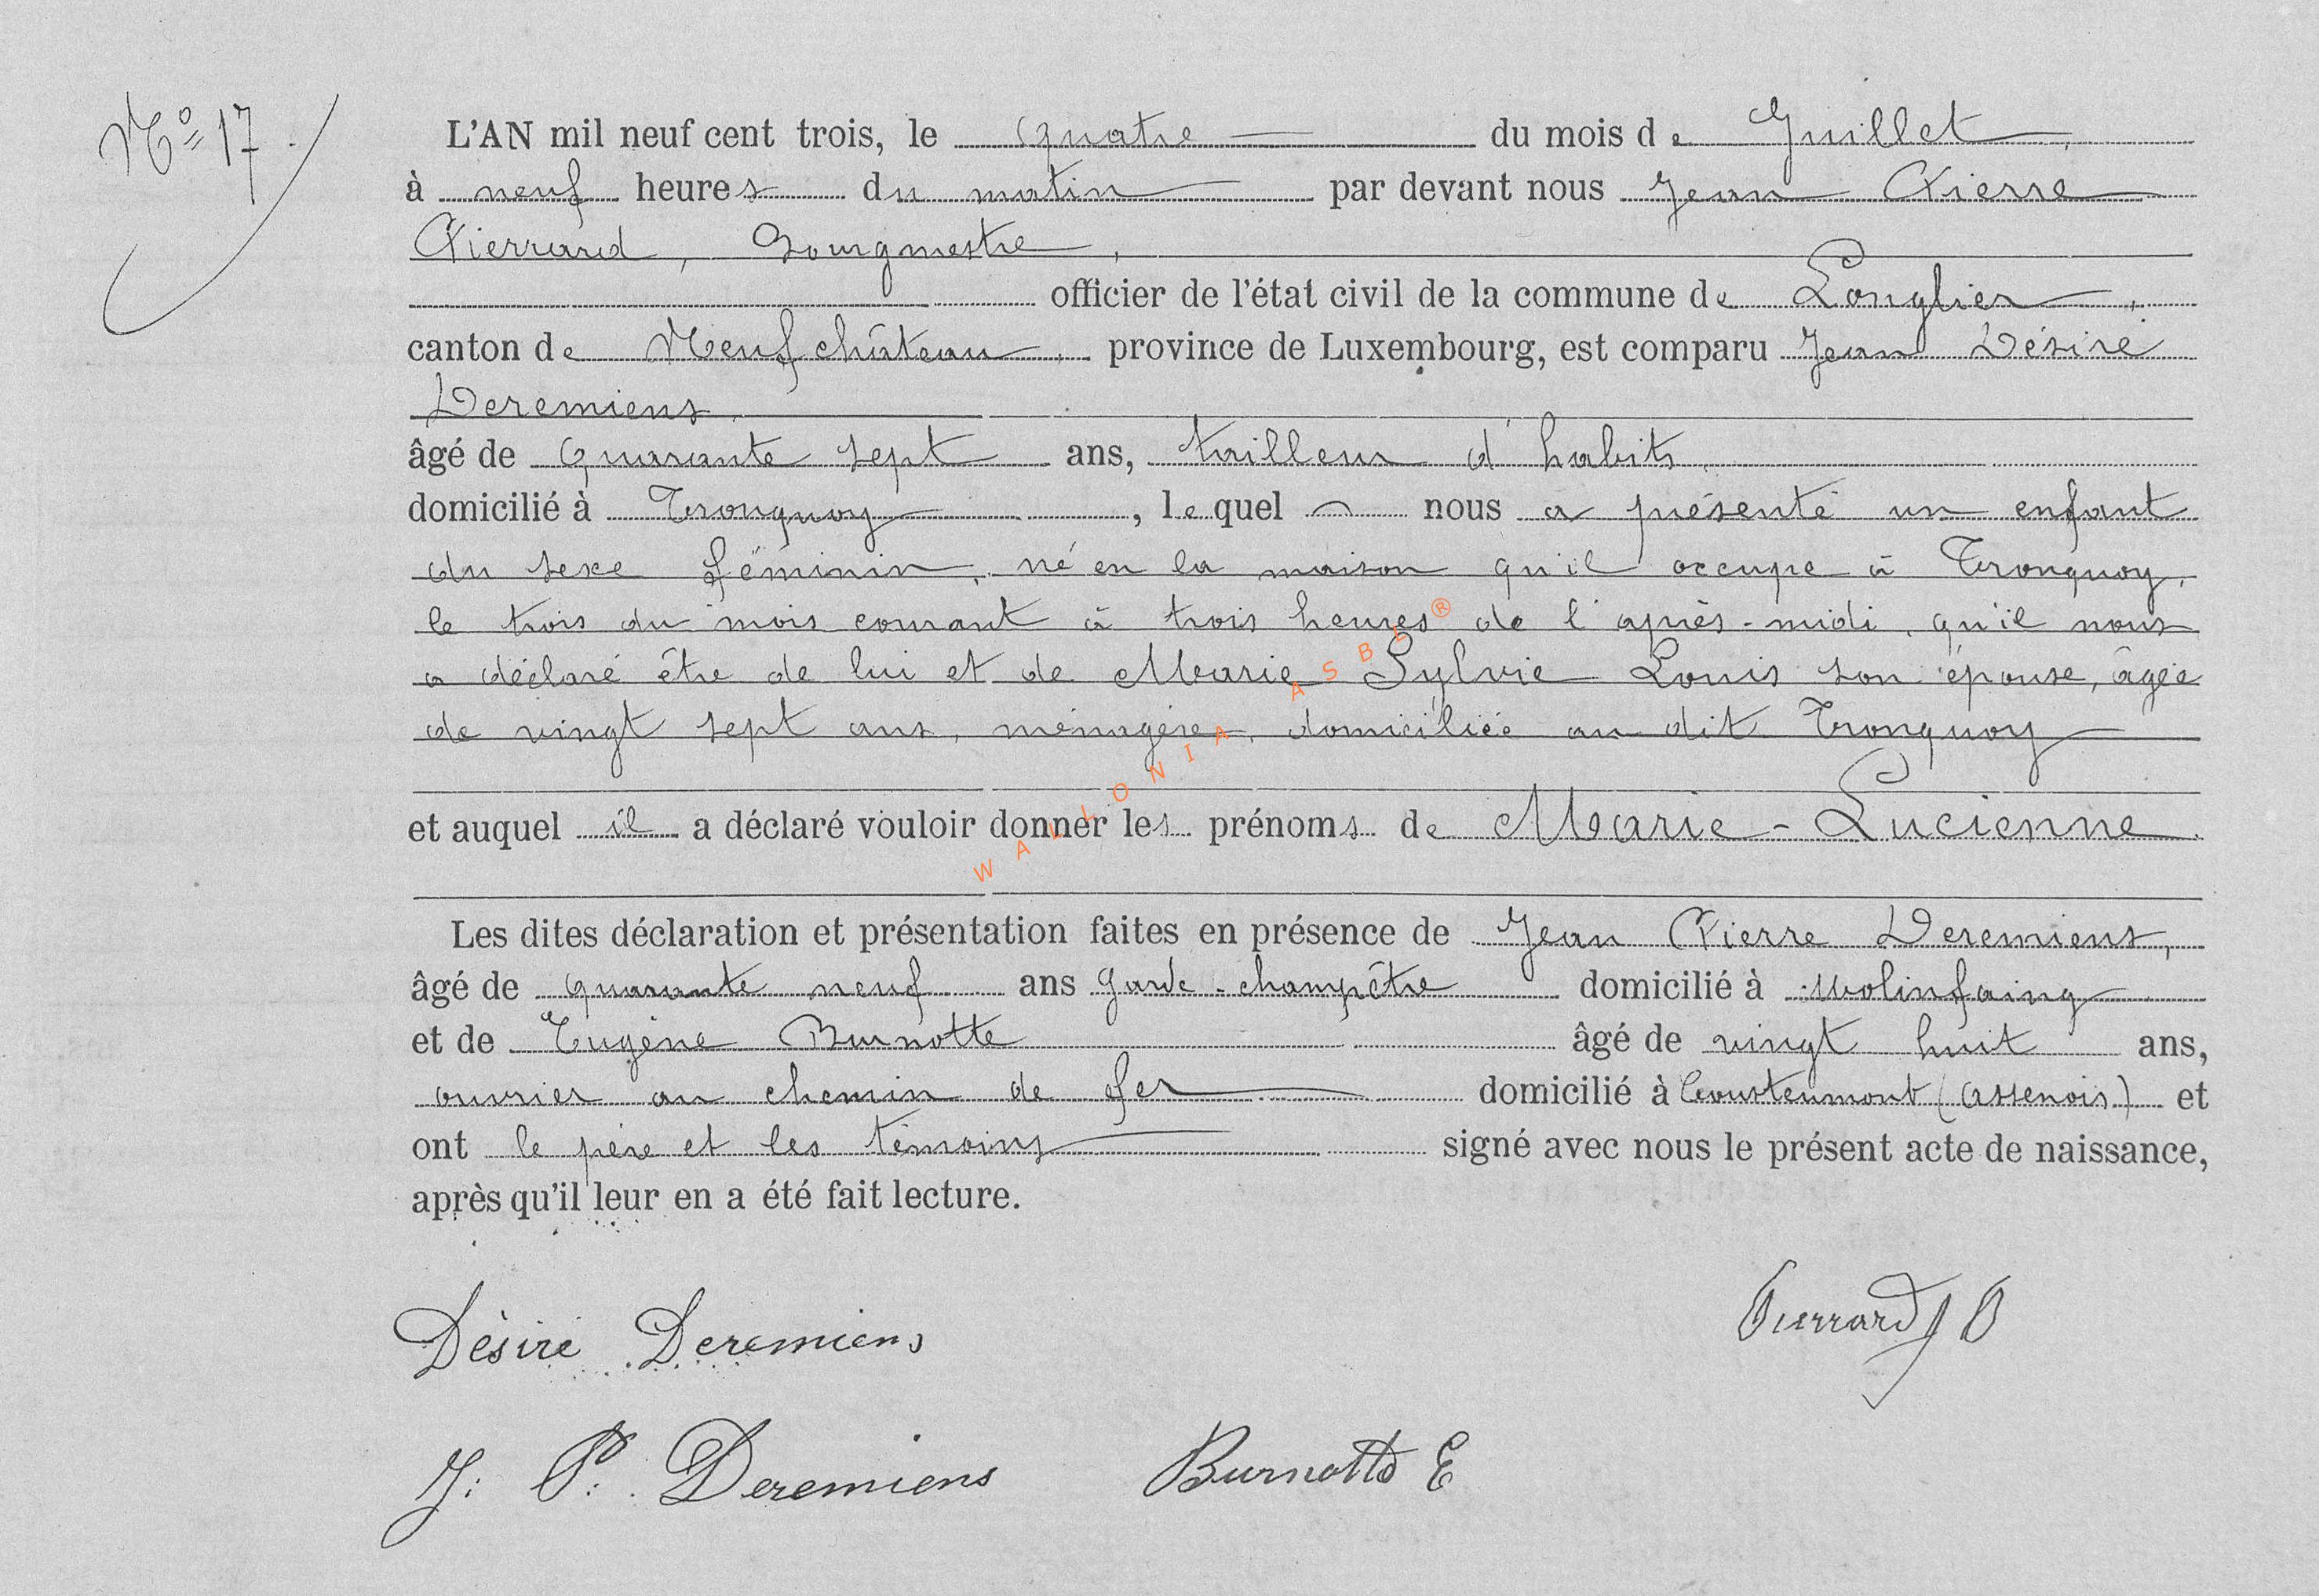 N° 17.
L'AN mil neuf cent trois, le quatre du mois de Juillet,
à neuf heures du matin par devant nous Jean Pierre
Pierrard, Bourgmestre,
officier de l'état civil de la commune de Longlier,
canton de Neufchâteau, province de Luxembourg, est comparu Jean Désiré
Deremiens,
âgé de quarante sept ans, tailleur d'habits,
domicilié à Tronquoy, lequel nous a présenté un enfant
du sexe féminin, né en la maison qu'il occupe à Tronquoy,
le trois du mois courant à trois heures de l'après-midi, qu'il nous
a déclaré être de lui et de Marie Sylvie Louis son épouse, âgée
de vingt sept ans, ménagère, domiciliée au dit Tronquoy
et auquel il a déclaré vouloir donner les prénoms de Marie-Lucienne.
Les dites déclaration et présentation faites en présence de Jean Pierre Deremiens,
âgé de quarante neuf ans garde-champêtre domicilié à Molinfaing
et de Eugène Burnotte âgé de vingt huit ans,
ouvrier au chemin de fer domicilié à Cousteumont (Assenois) et
ont le père et les témoins signé avec nous le présent acte de naissance,
après qu'il leur en a été fait lecture.
Désiré Deremiens
Pierrard J P
J. P. Deremiens Burnotte E
WALLONIA ASBL®